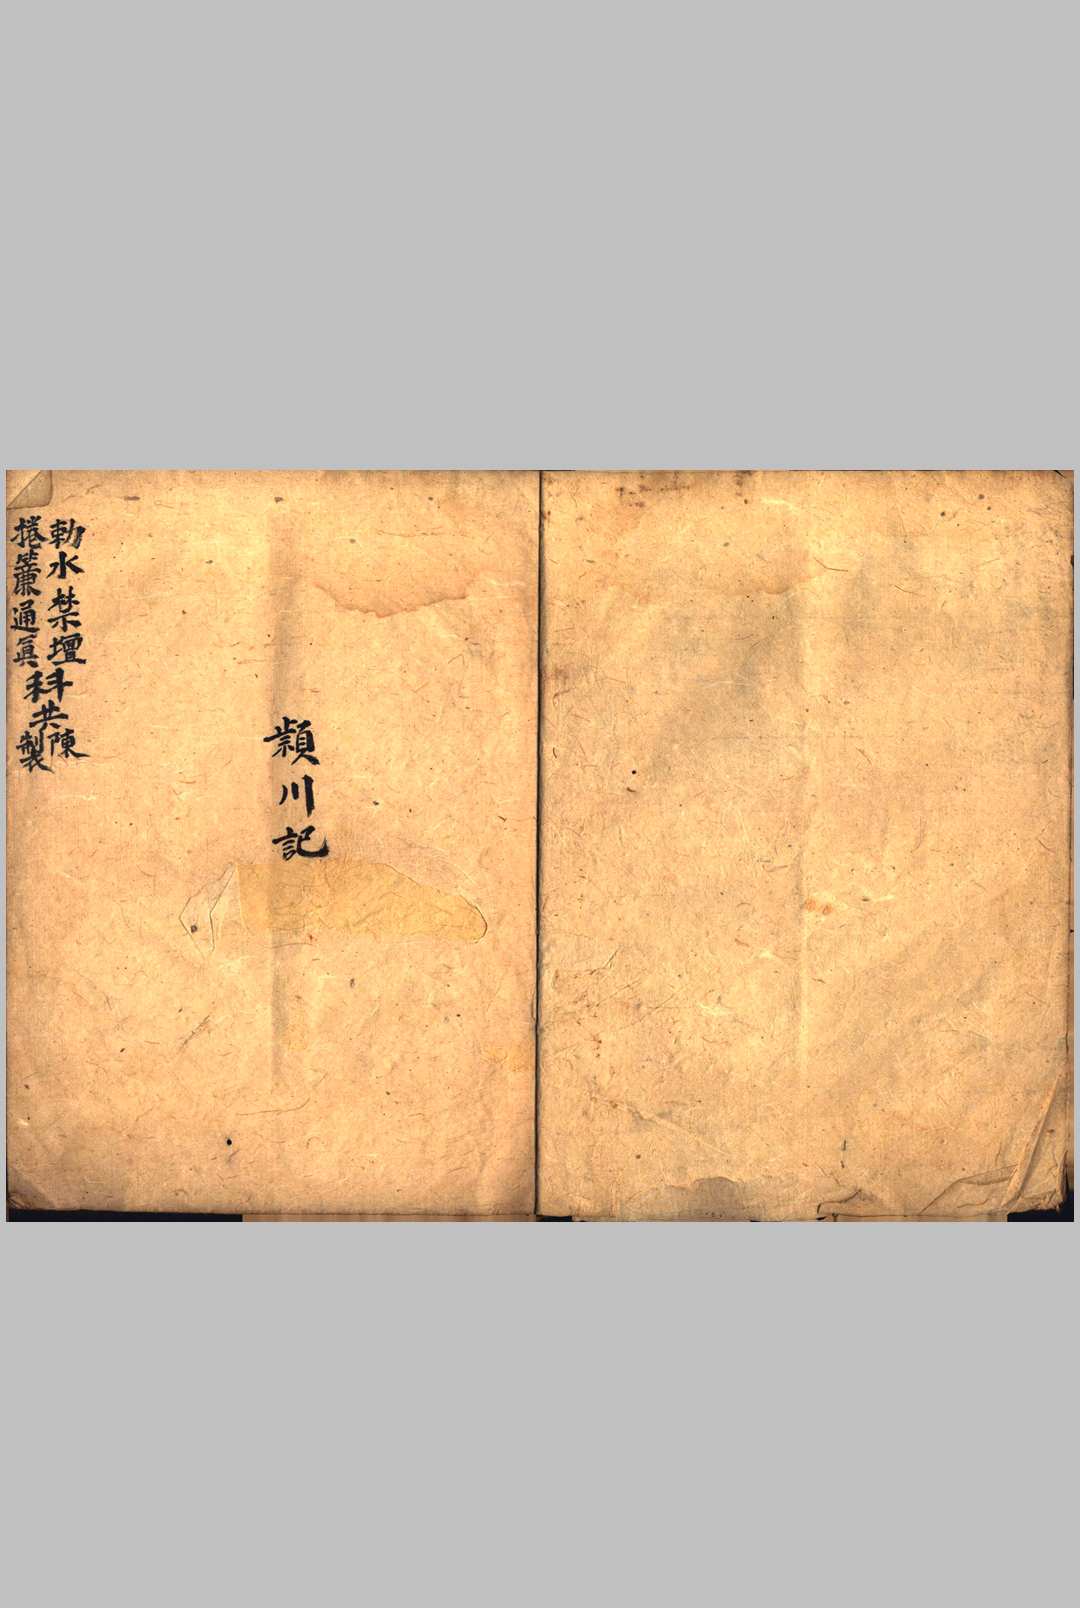 頴川記
勅水禁壇
捲簾通眞
科共
陳製